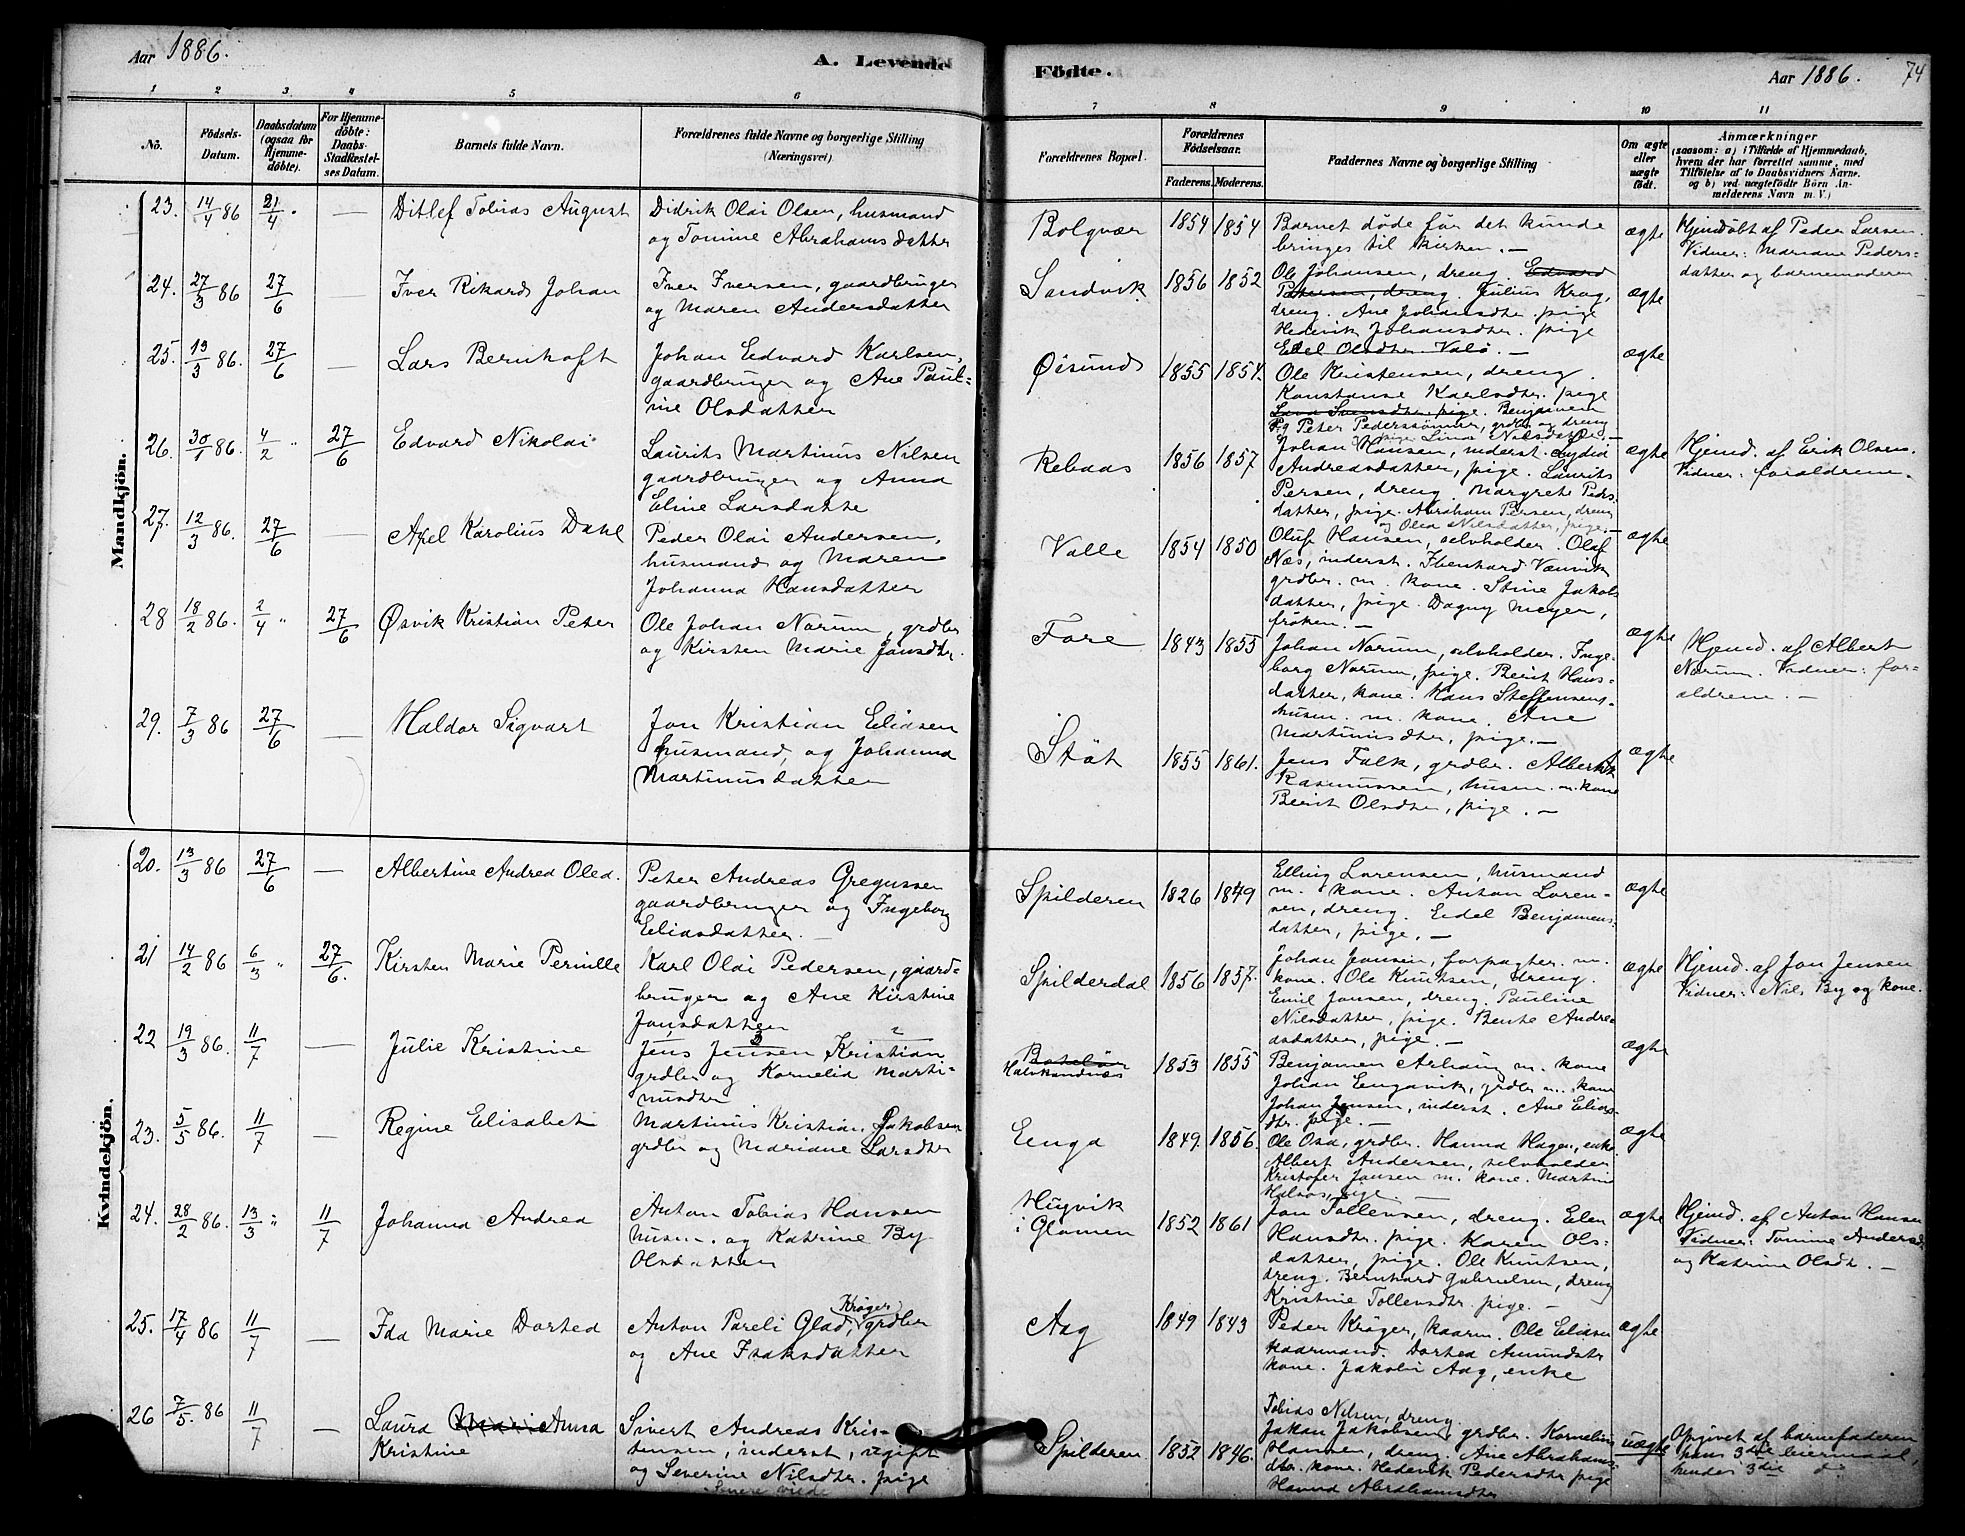 Aar 1886.
A. Levende
Födte.
Aar 1886.
74
1 2 3 4 5 6
7 8 9 10 11
No.
Födsels-Datum.
Daabsdatum (ogsaa for Hjemmedöbte).
For Hjemmedöbte: Daabs-Stadfæstelses Datum.
Barnets fulde Navn.
Forældrenes fulde Navne og borgerlige Stilling
(Næringsvei).
Forældrenes Bopæl.
Forældrenes Födselsaar.
Faderens. Moderens.
Faddernes Navne og borgerlige Stilling
Om ægte eller uægte födt.
Anmærkninger
(saasom: a) i Tilfælde af Hjemmedaab,
hvem der har forrettet samme, med
Tilföielse af to Daabsvidners Navne.
og b) ved uægtefödte Börn Anmelderens Navn m. V.)
Mandkjön.
23. 14/4 86 21/4. — Ditlef Tobias August
Didrik Olai Olsen, husmand
og Tomine Abrahamsdatter
Bolgvær 1854 1854
Barnet døde før det kunde
bringes til kirken. —
ægte
Hjemdøbt af Peder Larsen.
Vidner: Mariane Peders-
datter og barnemoderen
24. 27/3 86 27/6 Iver Rikard Johan
Iver Iversen, gaardbruger
og Maren Andersdatter
Sandvik 1856 1852
Ole Johansen, dreng. Edvard
Petersen, dreng. Julius Krog,
dreng. Ane Johansdtr. pige
Hedevik Johansdtr. pige
Edel Olsdtr. Valø. —
ægte
25. 13/3 86. 27/6 — Lars Bernhoft
Johan Edvard Karlsen,
gaardbruger og Ane Paul-
ine Olsdatter
Øisund 1855 1854.
Ole Kristensen, dreng.
Konstanse Karlsdtr. pige
pige. Benjamin
og Peter Pederssønner, grdbr og dreng
Lina Nilsdatter. —
ægte
26. 30/1 86. 4/2 " 27/6 Edvard Nikolai
Laurits Martinus Nilsen
gaardbruger og Anna
Eline Larsdatter
Rebaas 1856 1857
Johan Hansen, inderst. Lydia
Andreasdatter, pige. Laurits
Persen, dreng. Margrete Peds-
datter, pige. Abraham Persen, dreng
og Olea Nilsdatter, pige. —
ægte
Hjemd. af Erik Olsen.
Vidner: forældrene.
27. 12/3 86. 27/6 — Axel Karolius Dahl
Peder Olai Andersen,
husmand og Maren
Johanna Hansdatter
Valle 1854 1850
Oluf Hansen, selvholder. Olaf
Næs, inderst. Ibenhard Vænvik
grdbr. m. kone. Stine Jakobs
datter, pige. Dagny Meyer,
frøken. —
ægte
28 18/2 86. 2/4 " 27/6 Øsvik Kristian Peter
Ole Johan Norum, grdbr
og Kirsten Marie Jonsdtr.
Fore 1843 1855
Johan Norum, selvholder. Inge-
borg Norum, pige. Berit Hans-
datter, kone. Hans Steffensens,
husm. m. kone. Ane
Martinusdtr, pige. —
ægte
Hjemd. af Albert
Norum. Vidner: for-
ældrene. —
29. 7/3 86 27/6 — Haldor Sigvart
Jon Kristian Eliasen
husmand, og Johanna
Martinusdatter
Støt 1855 1861.
Jens Falk, grdbr. Albert
Rasmussen, husm. m. kone
Berit Olsdtr, pige. —
ægte
Kvindekjön.
20. 13/3 86 27/6 — Albertine Andrea Olea.
Peter Andreas Gregussen
gaardbruger og Ingeborg
Eliasdatter. —
Spilderen 1826 1849
Elling Lorensen, husmand
m. kone. Anton Loren-
sen, dreng. Edel Benjamins-
datter, pige. —
ægte
21 14/2 86 6/3 " 27/6. Kirsten Marie Pernille
Karl Olai Pedersen, gaard-
bruger og Ane Kirstine
Jonsdatter
Spilderdal 1856 1857.
Johan Jonsen, forpagter. m.
kone. Ole Knutsen, dreng.
Emil Jonsen, dreng. Pauline
Nilsdatter, pige. Bente Andre-
asdatter, pige. —
ægte
Hjemd. af Jon Jensen
Vidner: Nils By og kone.
22 19/3 86. 11/7 — Julie Kristine
Jens Jensen Kristian
grdbr og Kornelia Marti-
nusdtr
Halvkandnæs 1853 1855
Benjamin m. kone
Johan Engavik, grdbr m. kone
Johan Jensen, inderst. Ane Elias-
dtr. pige. —
ægte
23. 5/5 86. 11/7 — Regine Elisabet
Martinus Kristian Jakobsen
grdbr og Mariane Larsdtr
Enga 1849. 1856.
Ole Osa, grdbr. Hanna Hagen, enke
Albert Andersen, selvholder
Kristofer Jansen m. kone. Martine
pige —
ægte
24. 28/2 86. 13/3 " 11/7 Johanna Andrea
Anton Tobias Hansen
husm. og Katrine By
Olsdatter
Hugvik
i Glomen 1852 1861
Jon Tollensen, dreng. Elen
Hansdtr. pige. Karen Ols-
datter, pige. Ole Knutsen,
dreng. Bernhard Gabrielsen, dreng
Kristine Tollensdtr. pige. —
ægte
Hjemd. af Anton Hansen
Vidner: Tomine Andersd.
og Katrine Olsdtr. —
25. 17/4 86 11/7 — Ida Marie Dortea
Anton Pareli Glad, Krøger, grdbr
og Ane Isaksdatter
Aag 1849 1843
Peder Krøger, kaarm. Ole Eliasen
kaarmand. Dortea Amundsdtr
kone. Jakobi Aag, enke
ægte
26 7/5. 86 11/7 — Laura Marie Anna
Kristine
Sivert Andreas Kris-
tensen, inderst, ugift
og Severine Nilsdtr. pige
Spilderen 1852 1846.
Tobias Nilsen, dreng.
Jakob Jakobsen, grdbr. Kornelius
Hansen, dreng. Ane Abrahams-
dtr. kone. Hedevik Pedersdtr pige
Hanna Abrahamsdtr
uægte
Opgivet af barnefaderen
hans 3die leiermaal,
hendes 3die d: